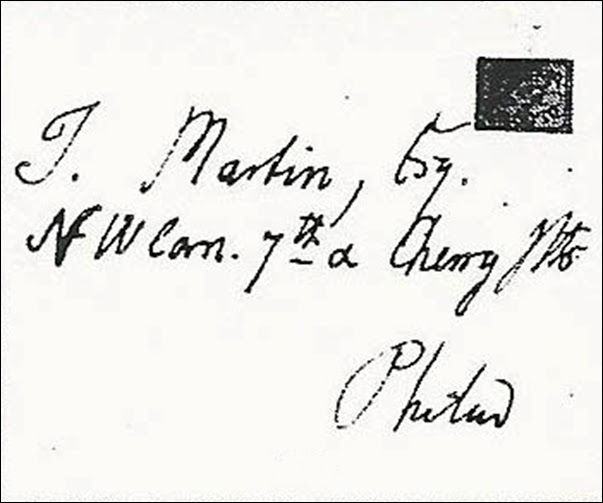 T. Martin, Esq.
N W Cor. 7th & Cherry Sts
Philad